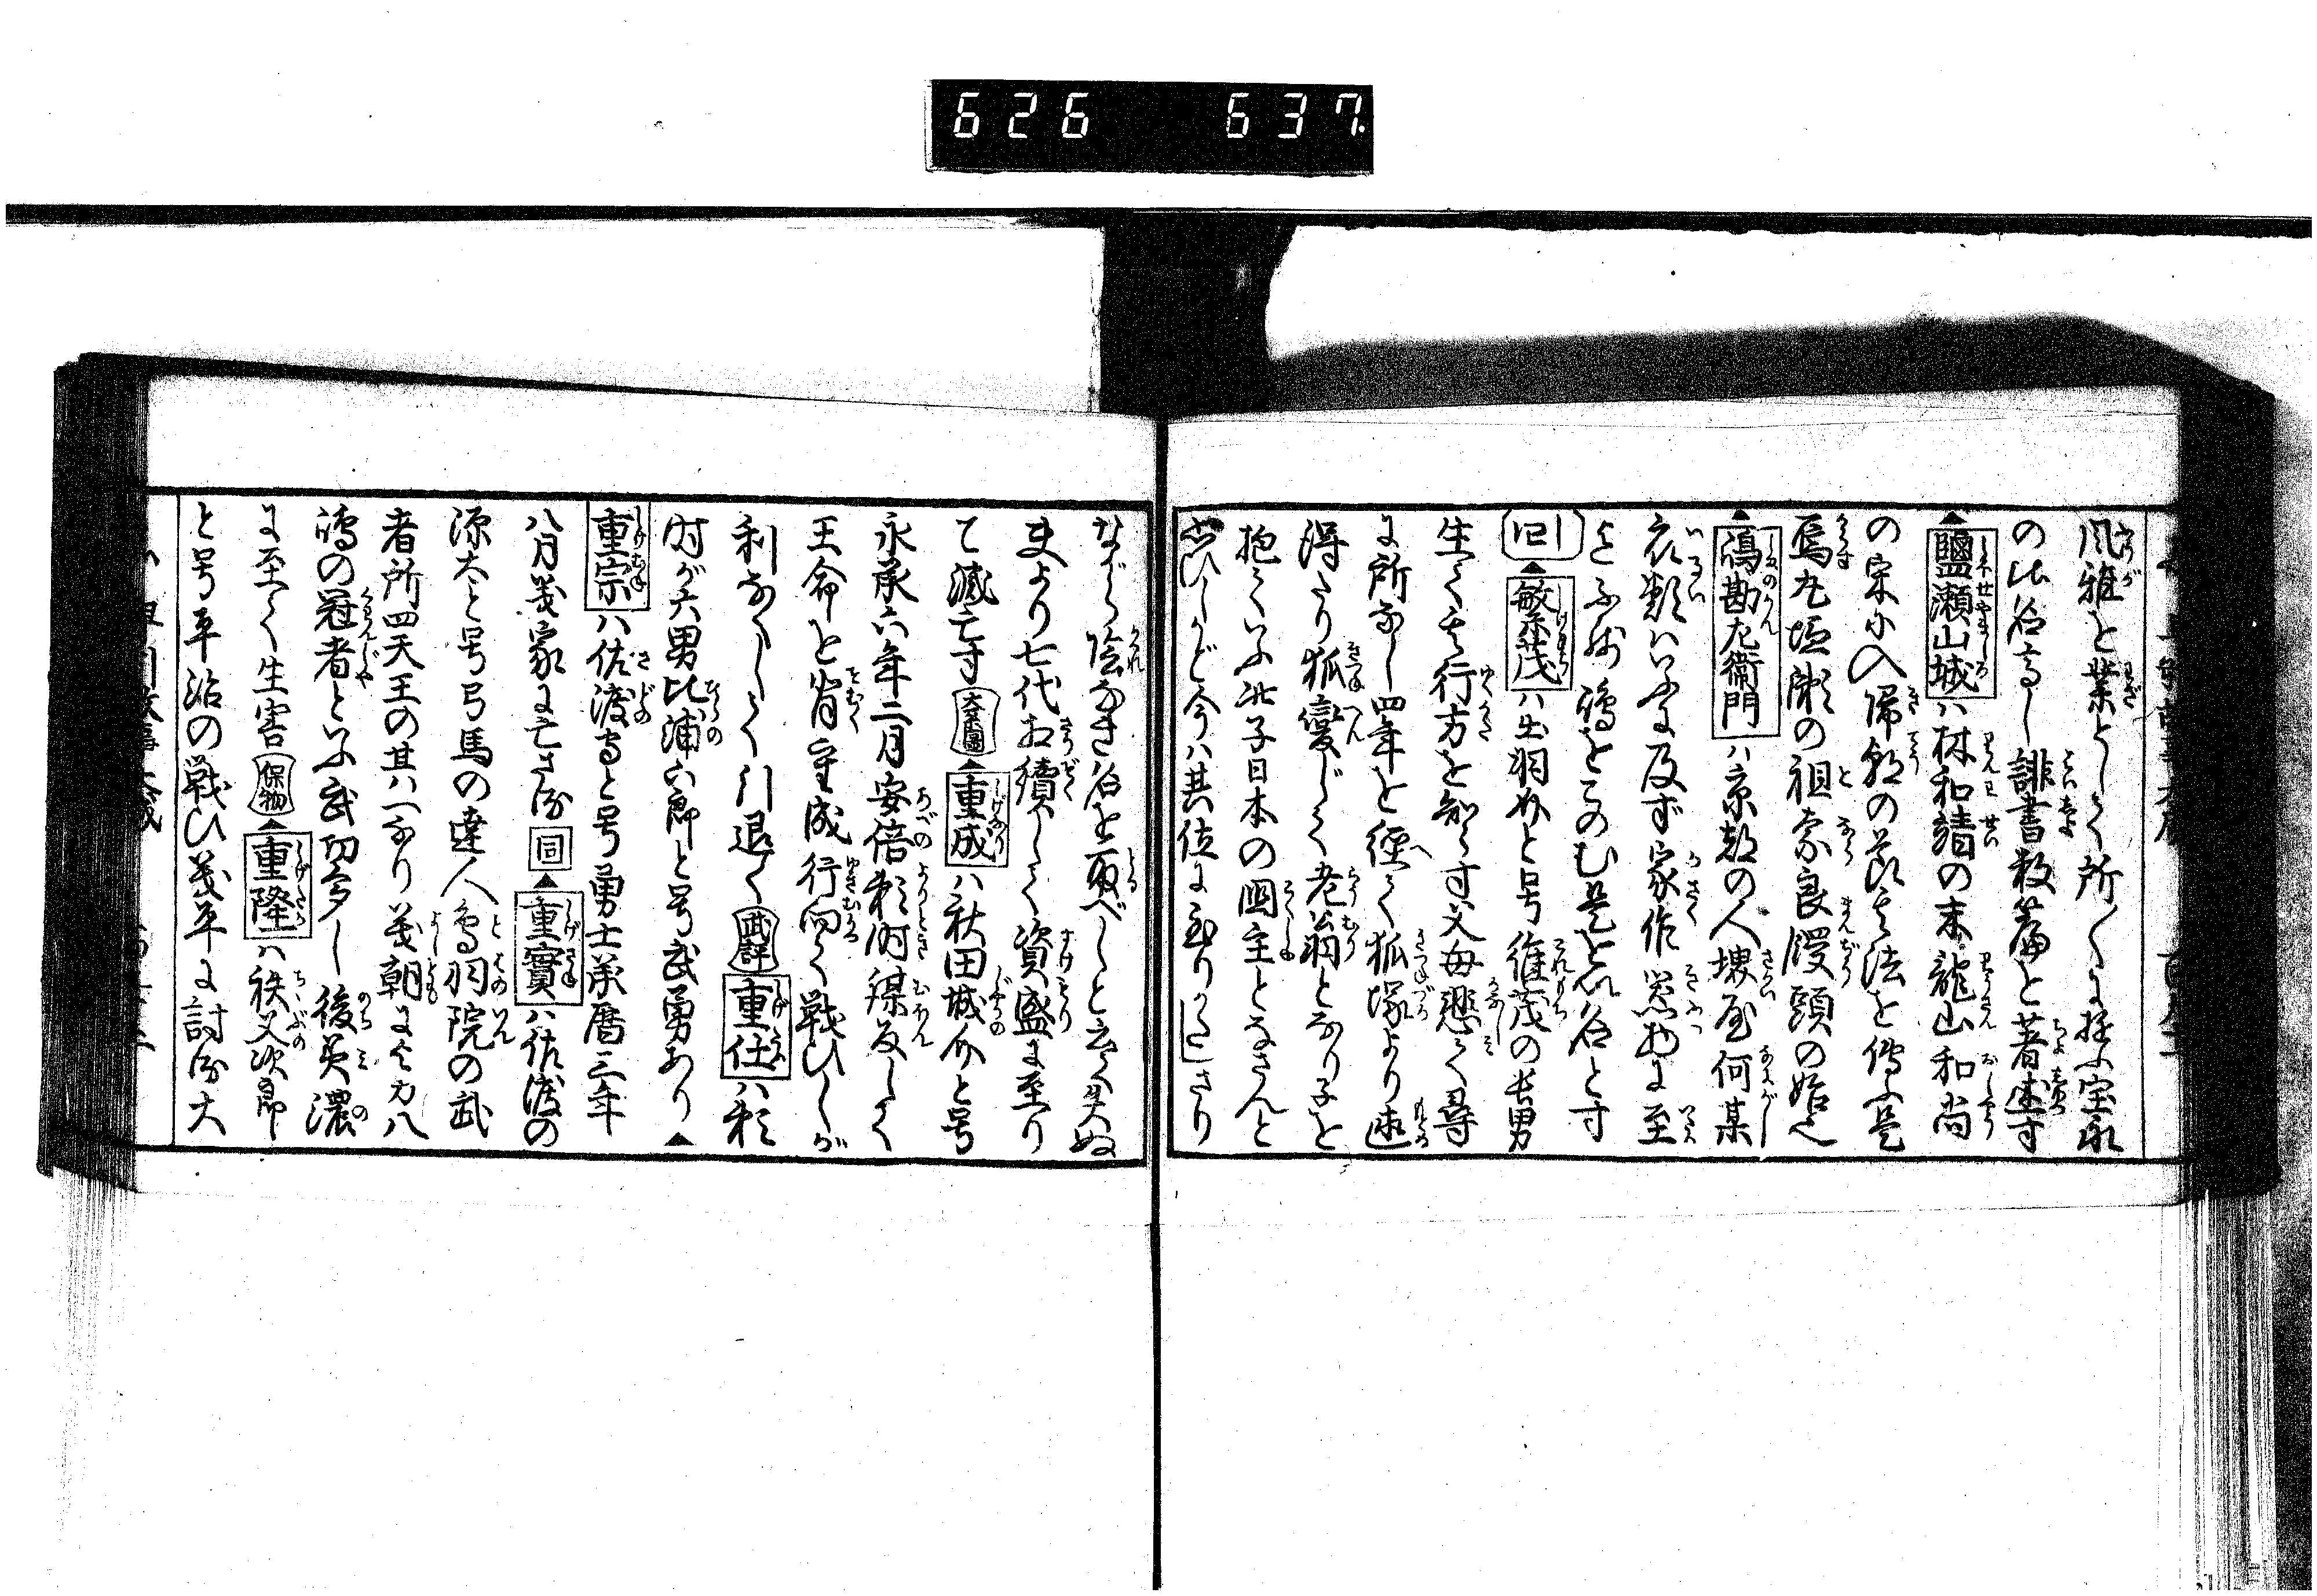 626 637
風雅を業として所〳〵に遊ふ宝永
の比名高し誹書数篇を著述す
▲鹽瀬山城ハ林和靖の末龍山和尚
の宋に入帰朝の節其法を伝ふ是
烏丸塩瀬の祖奈良饅頭の始也
▲鴻勘左衛門ハ京都の人堺屋何某
衣類ハいふに及ず家作器物に至
迄ふれ鴻をこのむ是を以名とす
〔シ〕▲繁茂ハ出羽介と号維茂の長男
生て其行方を知らす父母悲て尋
に所なし四年を経て狐塚より速
得たり狐変じて老翁となり子を
抱ていふ此子日本の国主となさんと
思ひしかど今ハ其位に至りかたしさり
ながら隠なき名を取べしと云て失ぬ
夫より七代相續して資盛に至り
て滅亡す▲重成ハ秋田城介と号
永承六年二月安倍頼時謀反して
王命を背重成行向て戦ひしが
利なくして引退く▲重任ハ頼
時が六男比浦六郎と号武勇あり▲
重宗ハ佐渡守と号勇士承暦三年
八月義家に亡さる同▲重實ハ佐渡の
源太と号弓馬の達人鳥羽院の武
者所四天王の其ハ一なり義朝に与力八
嶋の冠者といふ武功多し後美濃
に至て生害▲重隆ハ秩父次郎
と号平治の戦ひ義平に討る大